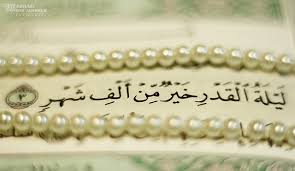 لَيْلَةُ الْقَدْرِ خَيْرٌ مِّنْ أَلْفِ شَهْرٍ ﴿٣﴾